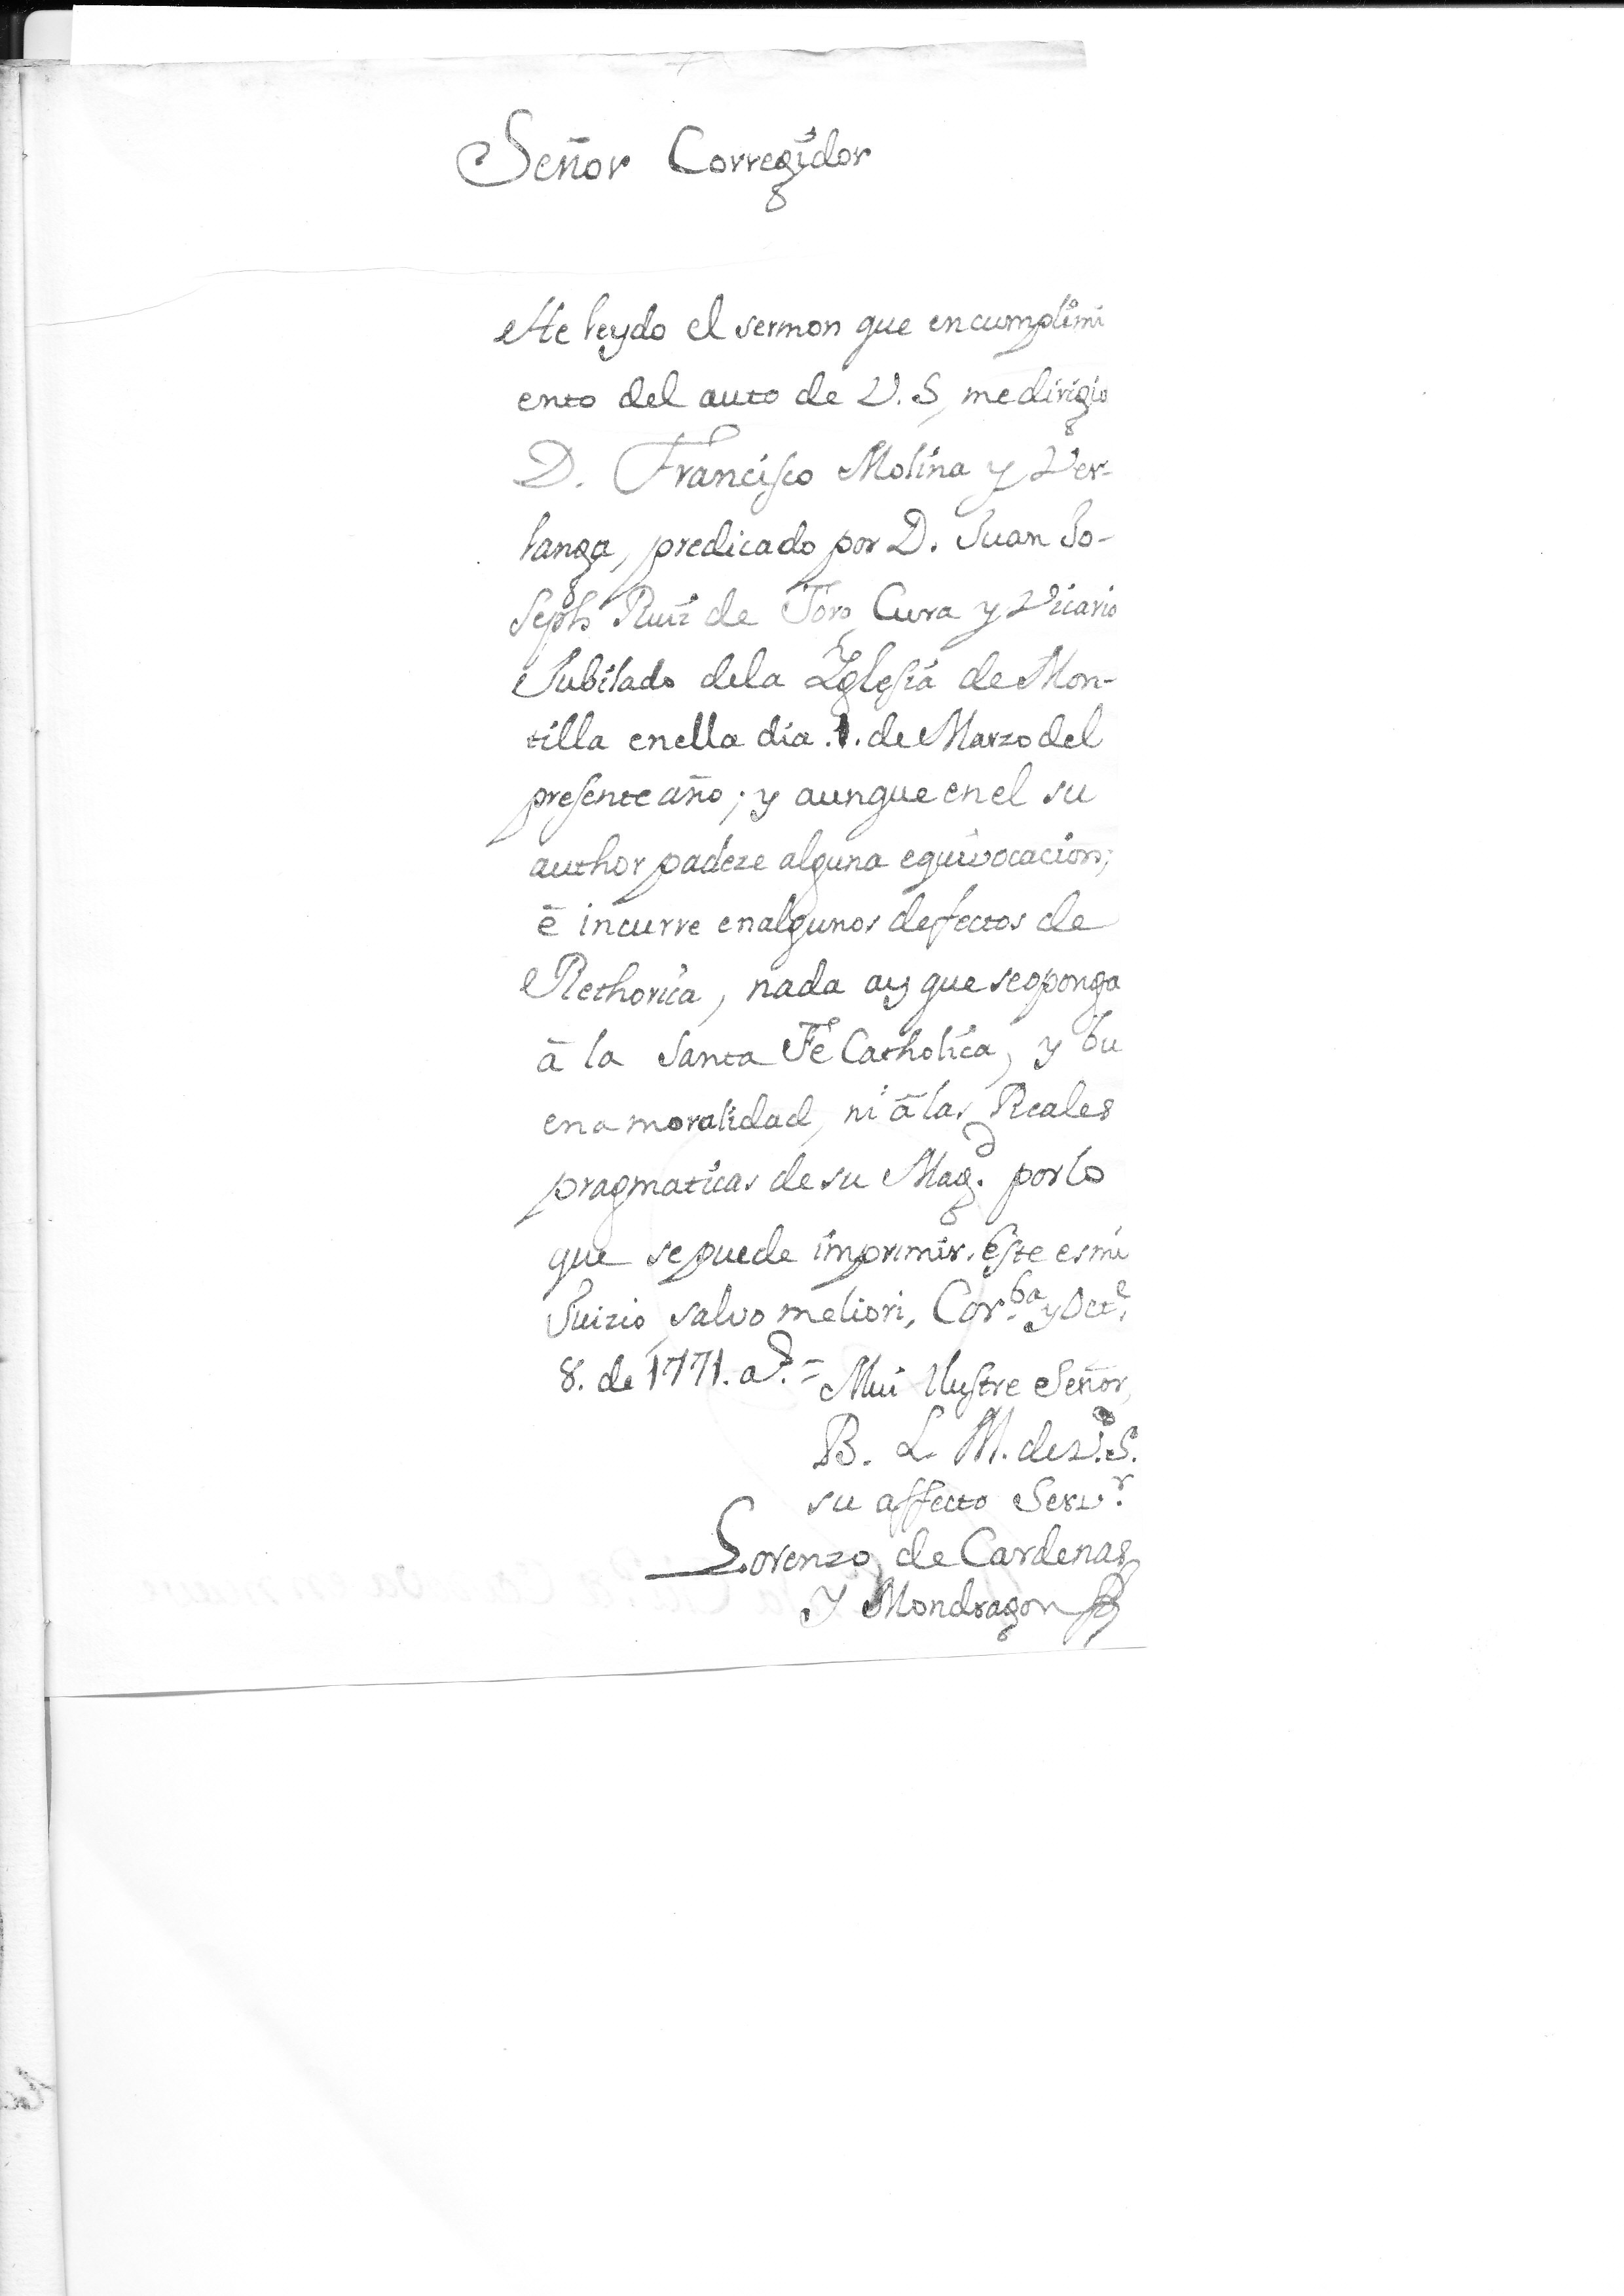 Señor Corregidor
He leydo el sermon que encumplimi
ento del auto de V. S, medirigio
D. Francisco Molina y Ver-
langa, predicado por D. Juan Jo-
seph Ruiz de Toro, Cura y Vicario
Jubilado dela Yglesia de Mon-
tilla enella dia .1. de Marzo del
presente año; y aunque enel su
author padeze alguna equivocacion;
ē incurre enalgunos defectos de
Rethorica, nada ay que seoponga
ā la Santa Fē Catholica, y bu
ena moralidad, ni ā las Reales
pragmaticas de su Mag.d por lo
que sepuede imprimir. Este esmi
Juizio salvo meliori, Cor.ba y Oct.e
8. de 1771. a.s = Mui Ilustre Señor,
B. L. M. de V. S.
su affecto Serv.r
Lorenzo de Cardenas
y Mondragon